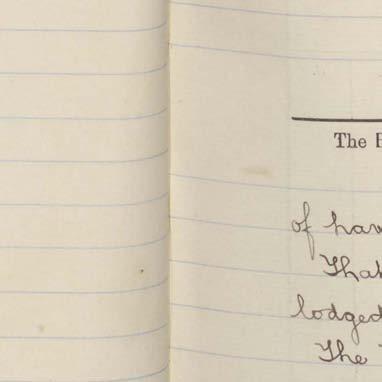 The
of hav
That
lodged
The